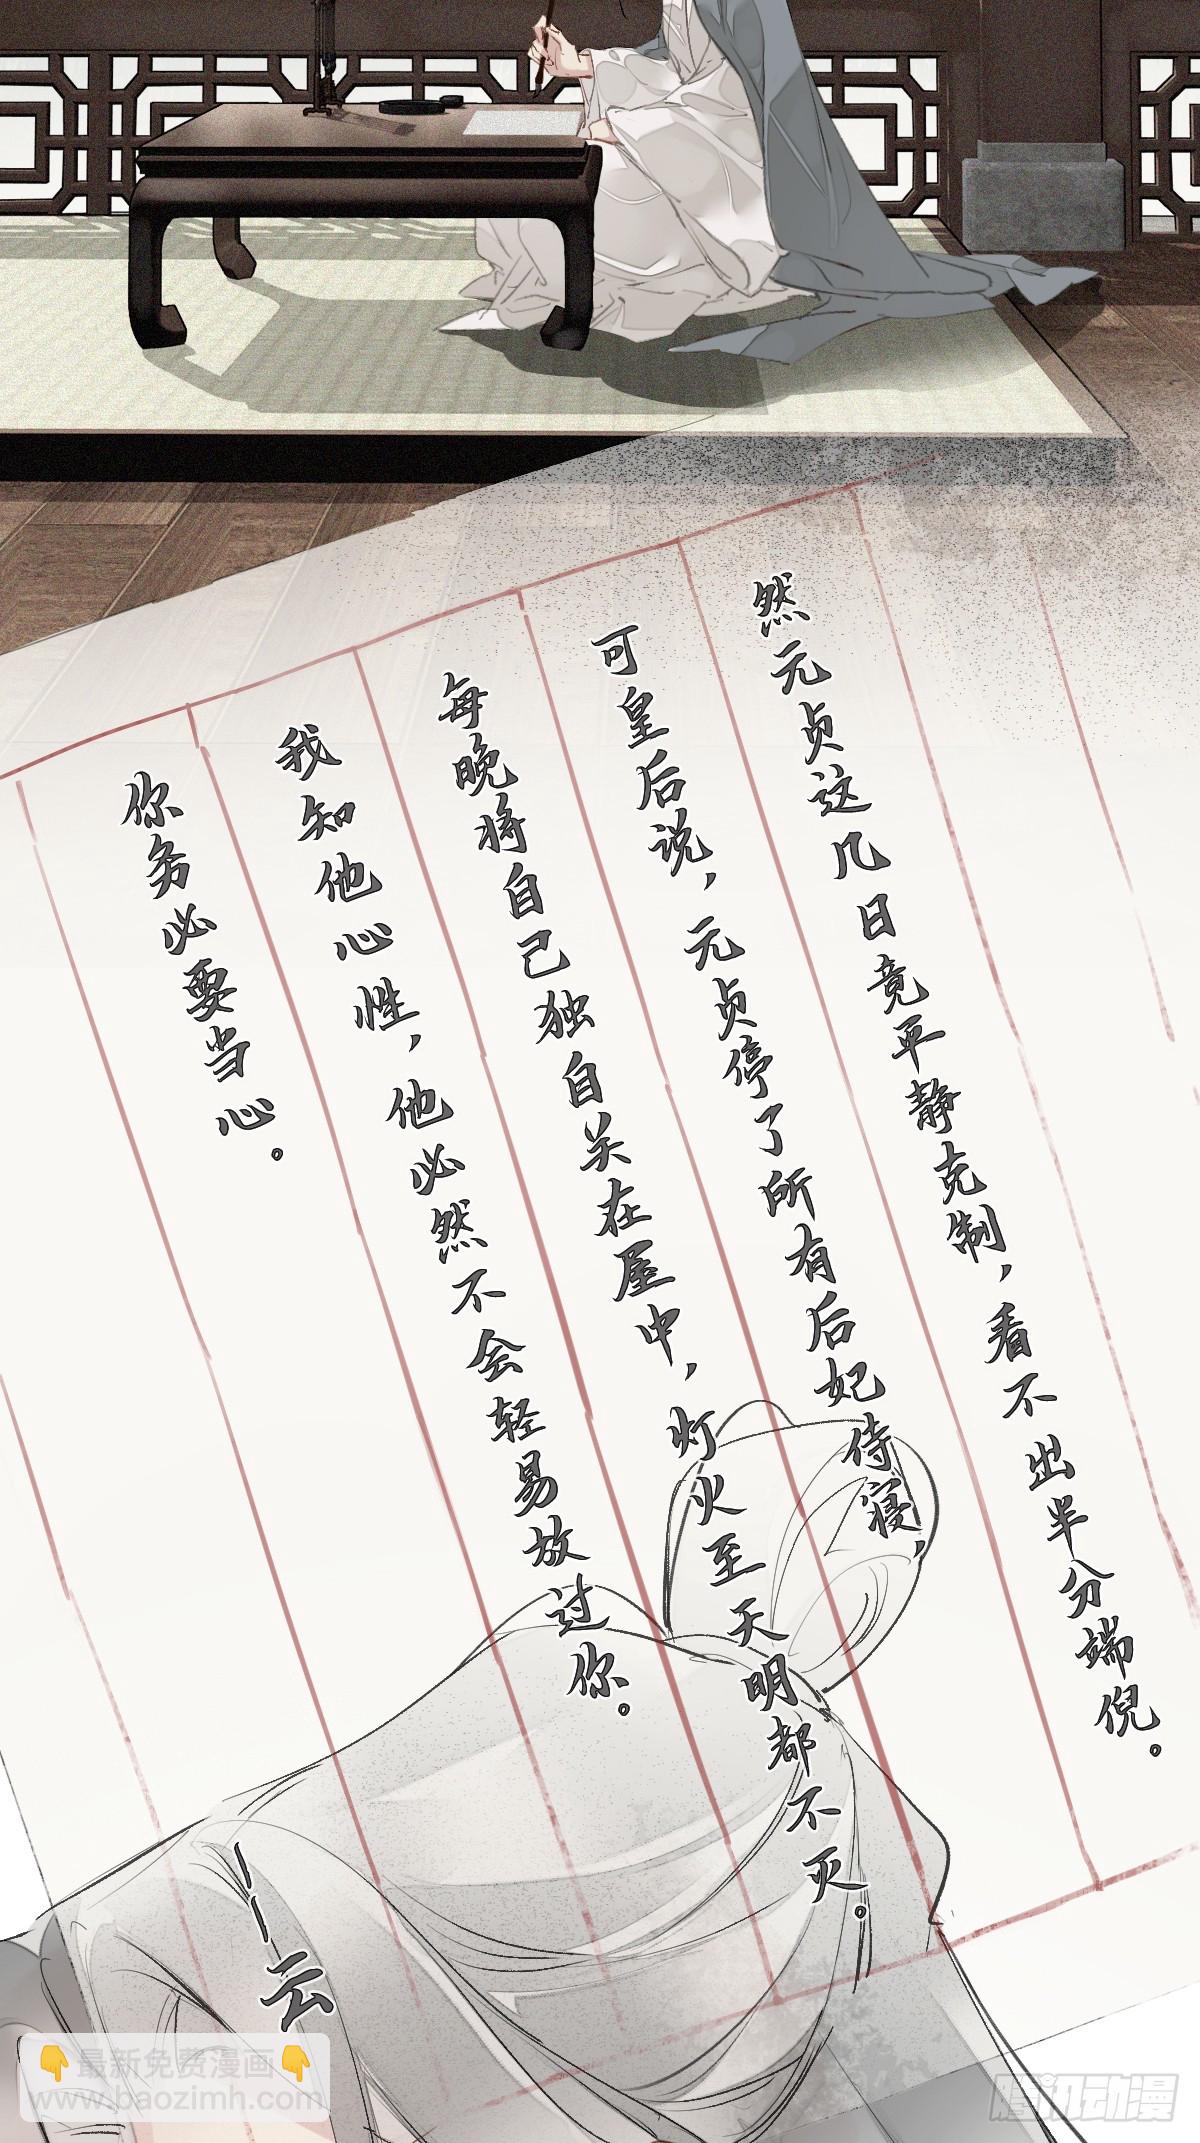 然元贞这几日竟平静克制，看不出半分端倪。
可皇后说，元贞停了所有后妃侍寝，
每晚将自己独自关在屋中，灯火至天明都不灭。
我知他心性，他必然不会轻易放过你。
你务必要当心。
——云
👇最新免费漫画👇
www.baozimh.com
腾讯动漫